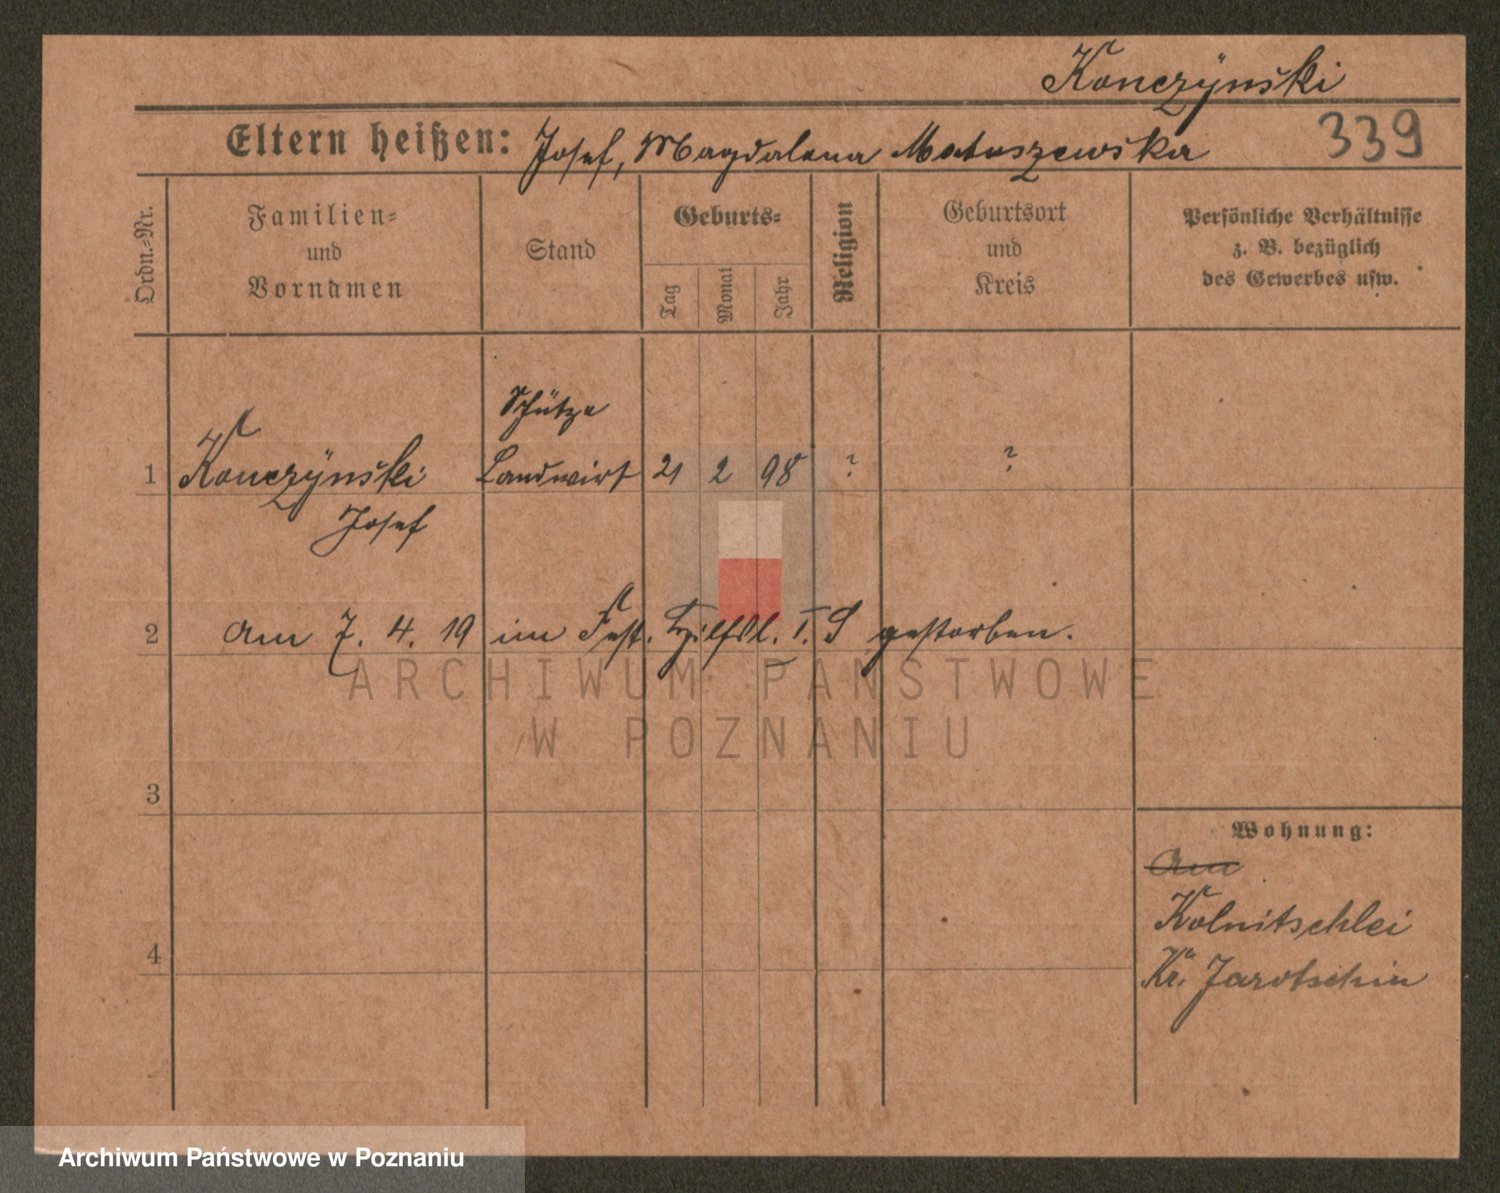 Konczÿnski
Eltern heißen: Josef, Magdalena Matuszewska
339
Ordn.-Nr.
Familien-
und
Vornamen
Stand
Geburts-
Tag
Monat
Jahr
Religion
Geburtsort
und
Kreis
Persönliche Verhältnisse
z. B. bezüglich
des Gewerbes usw.
Schütze
1 Konczÿnski Landwirt 21 2 98 ? ?
Josef
2 am 7. 4. 19 im Fest. Hilfsl. I. S gestorben.
ARCHIWUM PAŃSTWOWE
W POZNANIU
3
Wohnung:
am
Kolnitschlei
4
Kr. Jarotschin
Archiwum Państwowe w Poznaniu